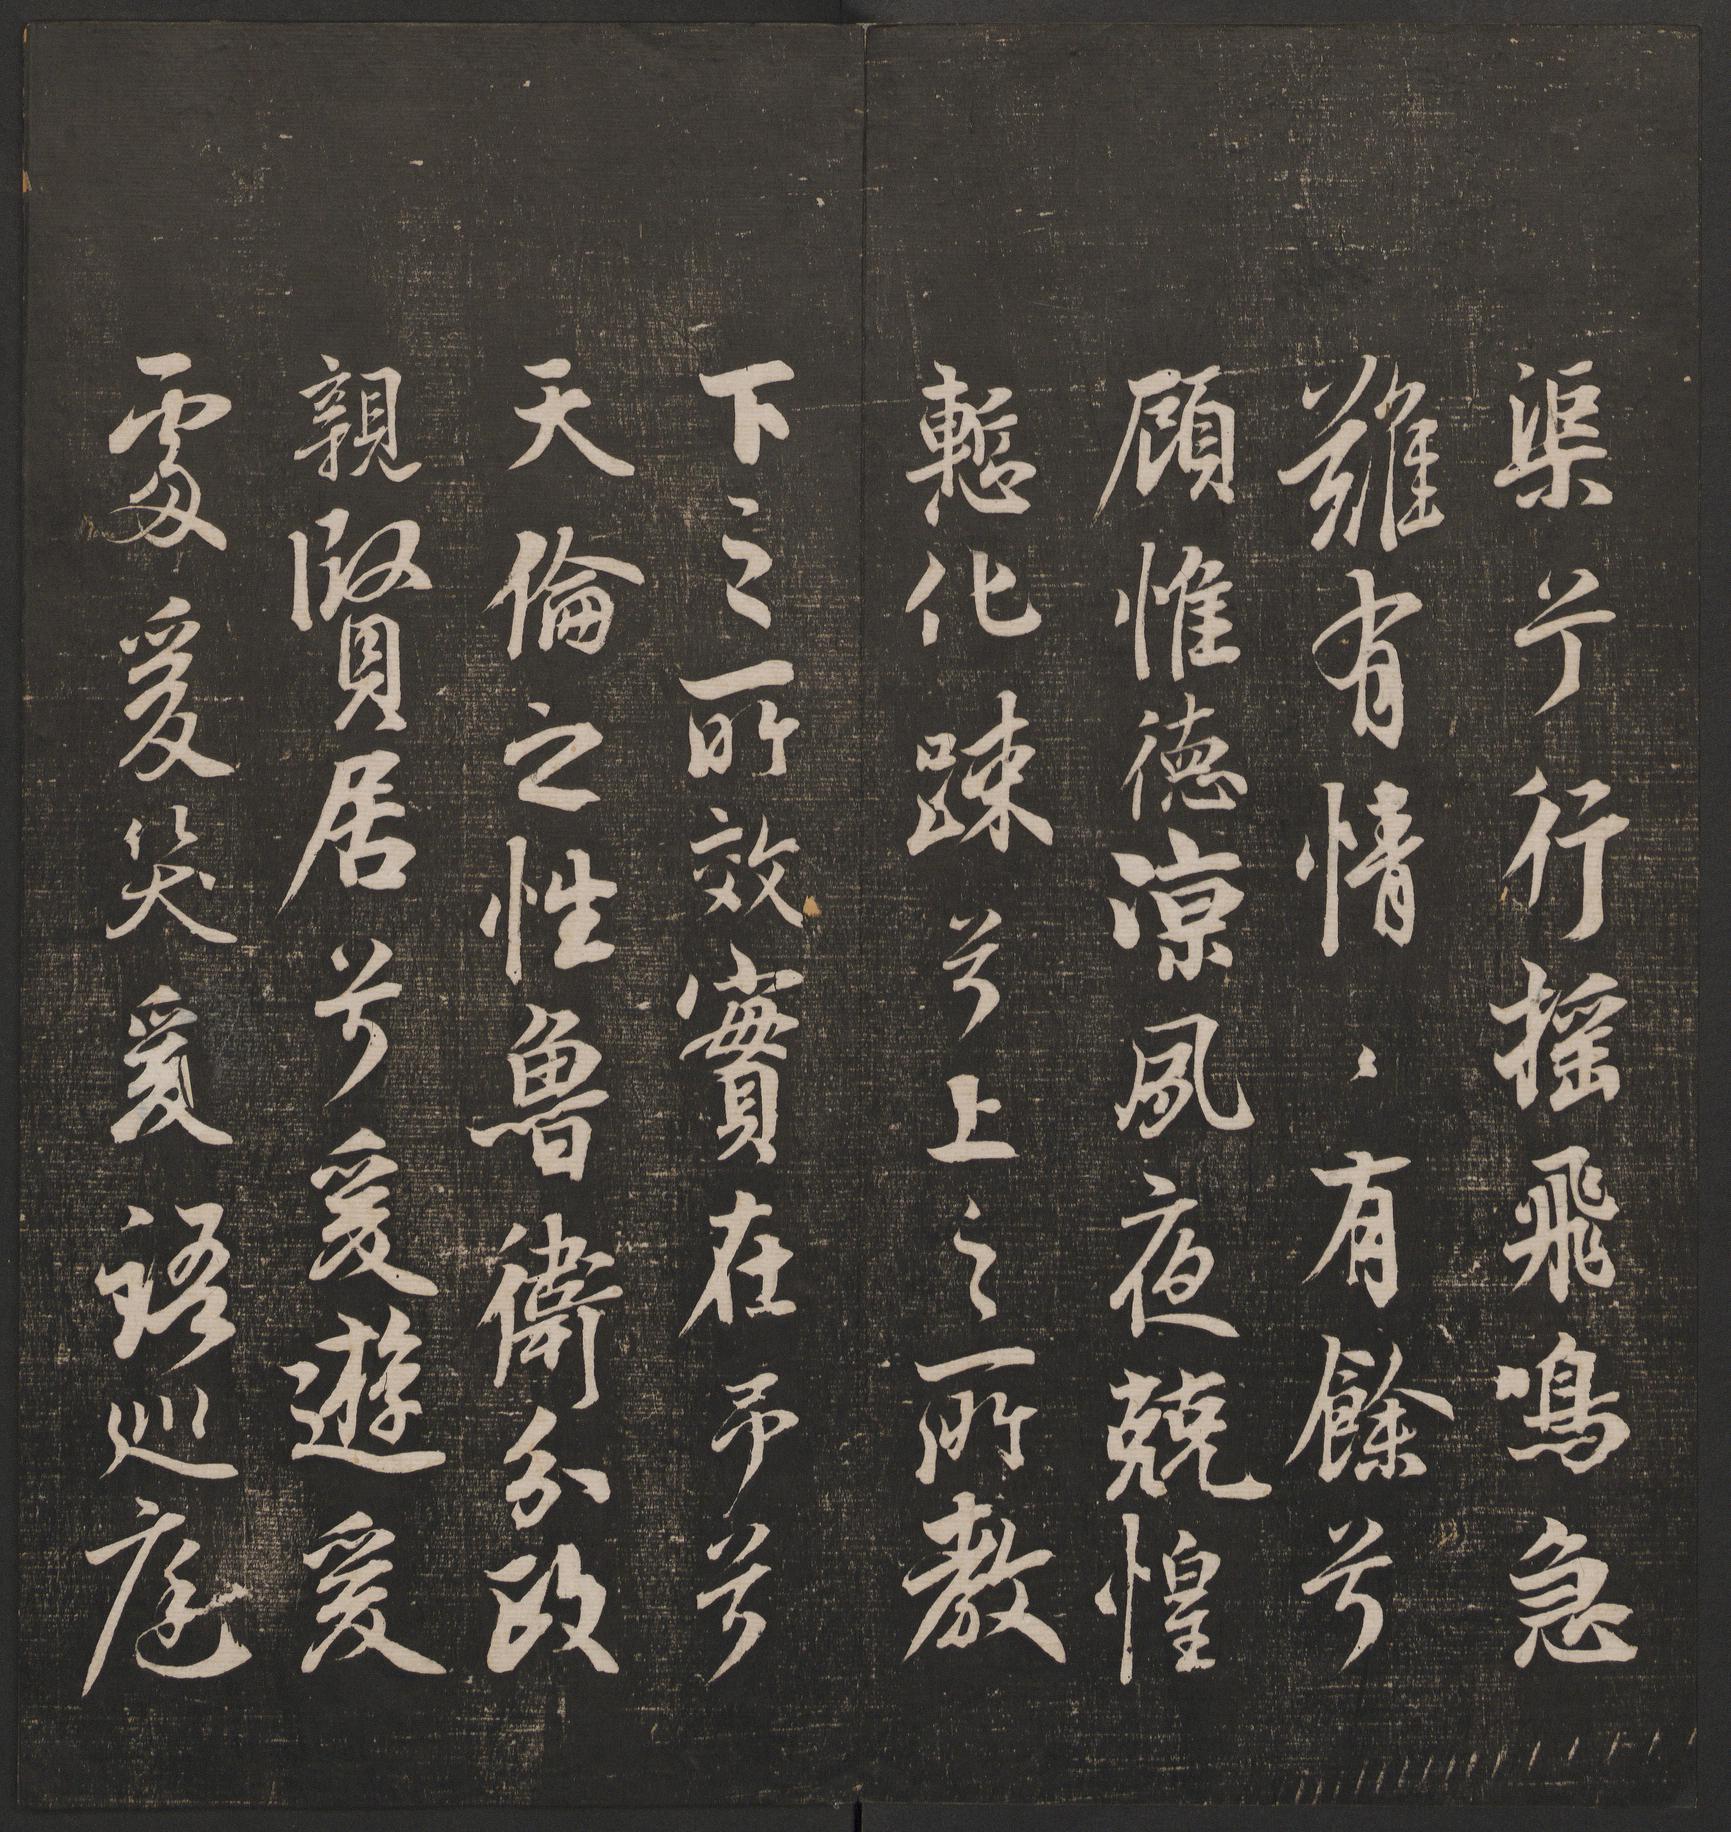 渠兮行搖飛鳴急
難有情〻有餘兮
顧惟德涼夙夜兢惶
慙化踈兮上之所教
下之所效實在予兮
天倫之性魯衛分政
親賢居兮爰遊爰
處爰笑爰語巡庭